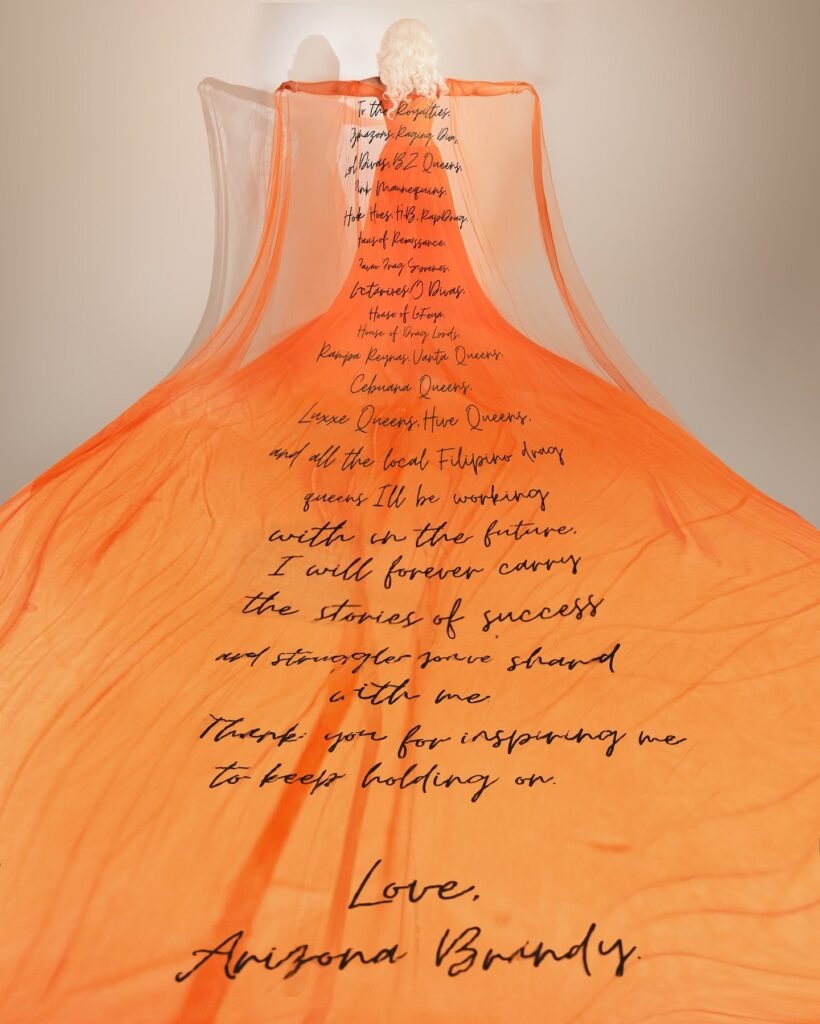 To the Royalties,
Amazons, Raging Divas,
Lol Divas, BZ Queens,
Pink Mannequins,
Hok Hoes, HB, RapDrag,
Haus of Renaissance,
Drag Supremes,
O Divas,
House of LeFeya,
House of Drag Lords,
Rampa Reynas, Vanta Queens,
Cebuana Queens,
Luxxe Queens, Hive Queens,
and all the local Filipino drag
queens Ill be working
with in the future.
I will forever carry
the stories of success
and struggles youve shared
with me.
Thank you for inspiring me
to keep holding on.
Love,
Arizona Brandy.